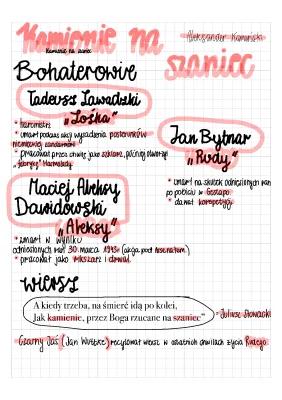 Kamienie na szaniec
Kamienie na szaniec
Aleksander Kamiński
Bohaterowie
Tadeusz Zawadzki
„Zośka”
* harcmistrz
* umarł podczas akcji wysadzenia posterunków
niemieckiej żandarmerii
* pracował przez chwilę jako szklarz, później otworzył
„fabrykę” Marmolady
Jan Bytnar
„Rudy”
* umarł na skutek odniesionych ran
po pobiciu w Gestapo
* dawał korepetycje
Maciej Aleksy
Dawidowski
„Aleksy”
* zmarł w wyniku
odniesionych ran 30 marca 1943 (akcja pod Arsenałem)
* pracował jako drwal
wiersz
A kiedy trzeba, na śmierć idą po kolei,
Jak kamienie, przez Boga rzucane na szaniec”
- Juliusz Słowacki
Czarny Jaś (Jan Wuttke) recytował wiersz w ostatnich chwilach życia Rudego.